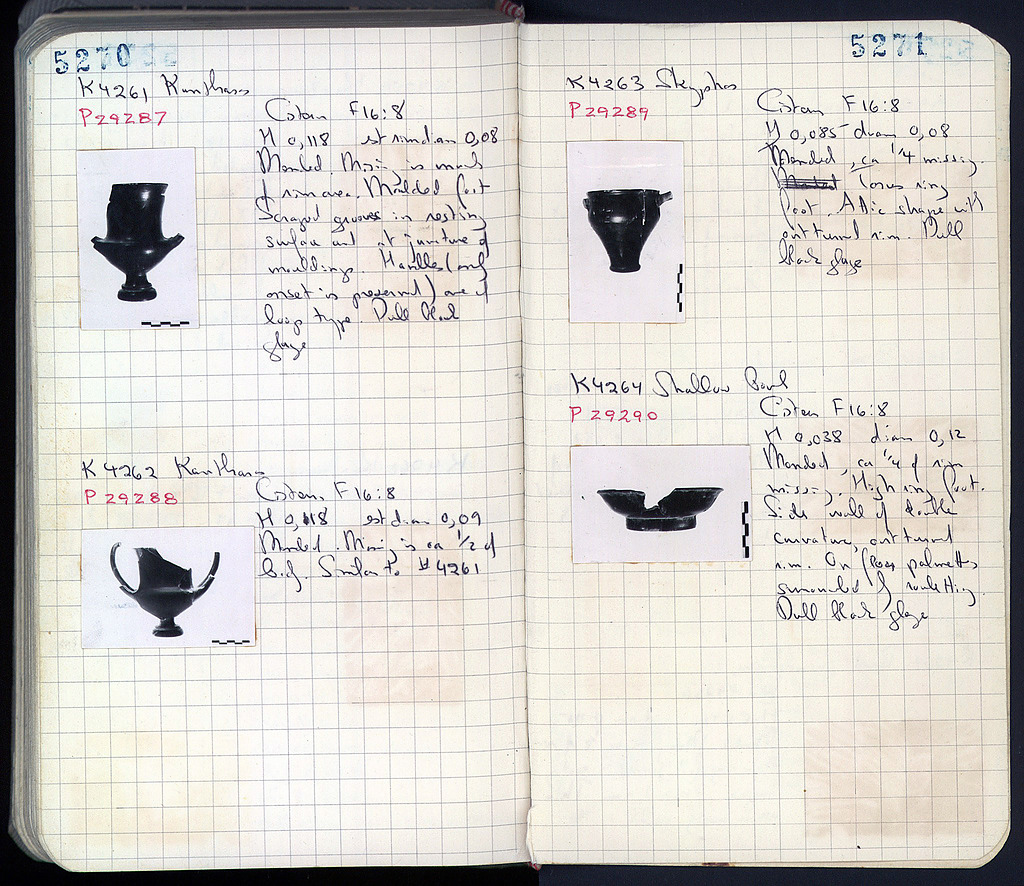 5270
K4261 Kantharos
P29287
Cistern F16:8
H 0,118 est rim diam 0,08
Mended. Missing is much
of rim area. Moulded foot
Scraped grooves in resting
surface and at juncture of
mouldings. Handles (only
onset is preserved) are of
loop type. Dull black
glaze
K 4262 Kantharos
P 29288
Cistern F16:8
H 0,118 est diam 0,09
Mended. Missing is ca 1/2 of
Similar to #4261
5271
K4263 Skyphos
P29289
Cistern F16:8
H 0,085 diam 0,08
Mended, ca 1/4 missing.
Torus ring
foot. Attic shape with
outturned rim. Dull
black glaze
K4264 Shallow Bowl
P 29290
Cistern F16:8
H 0,038 diam 0,12
Mended, ca 1/4 of rim
missing. High ring foot.
Side wall of double
curvature, outturned
rim. On floor palmettes
surrounded by rouletting.
Dull black glaze